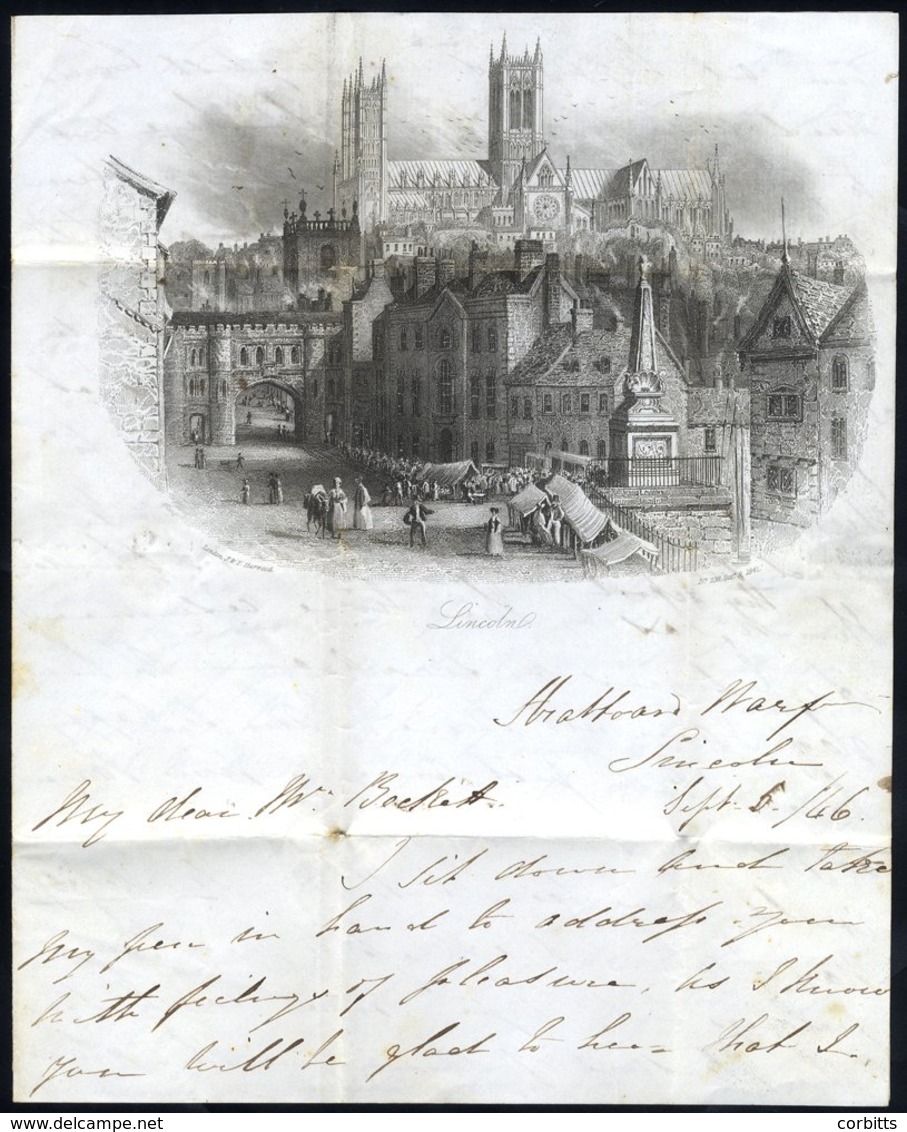 London, J & F Harwood.
Lincoln.
Lincoln
My dear Mr Beckett. Sept. 5 /46.
I sit down and take
My pen in hand to address you
with feelings of pleasure, as I know
you will be glad to hear that I
delcampe.net
corbitts